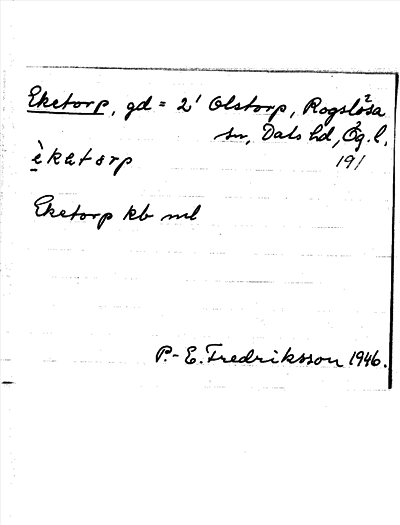 Eketorp, gd = 2' Olstorp, Rogslösa
sn, Dals hd, Ög. l.
èkatɔrp 191
Eketorp kb ml
P.-E. Fredriksson 1946.